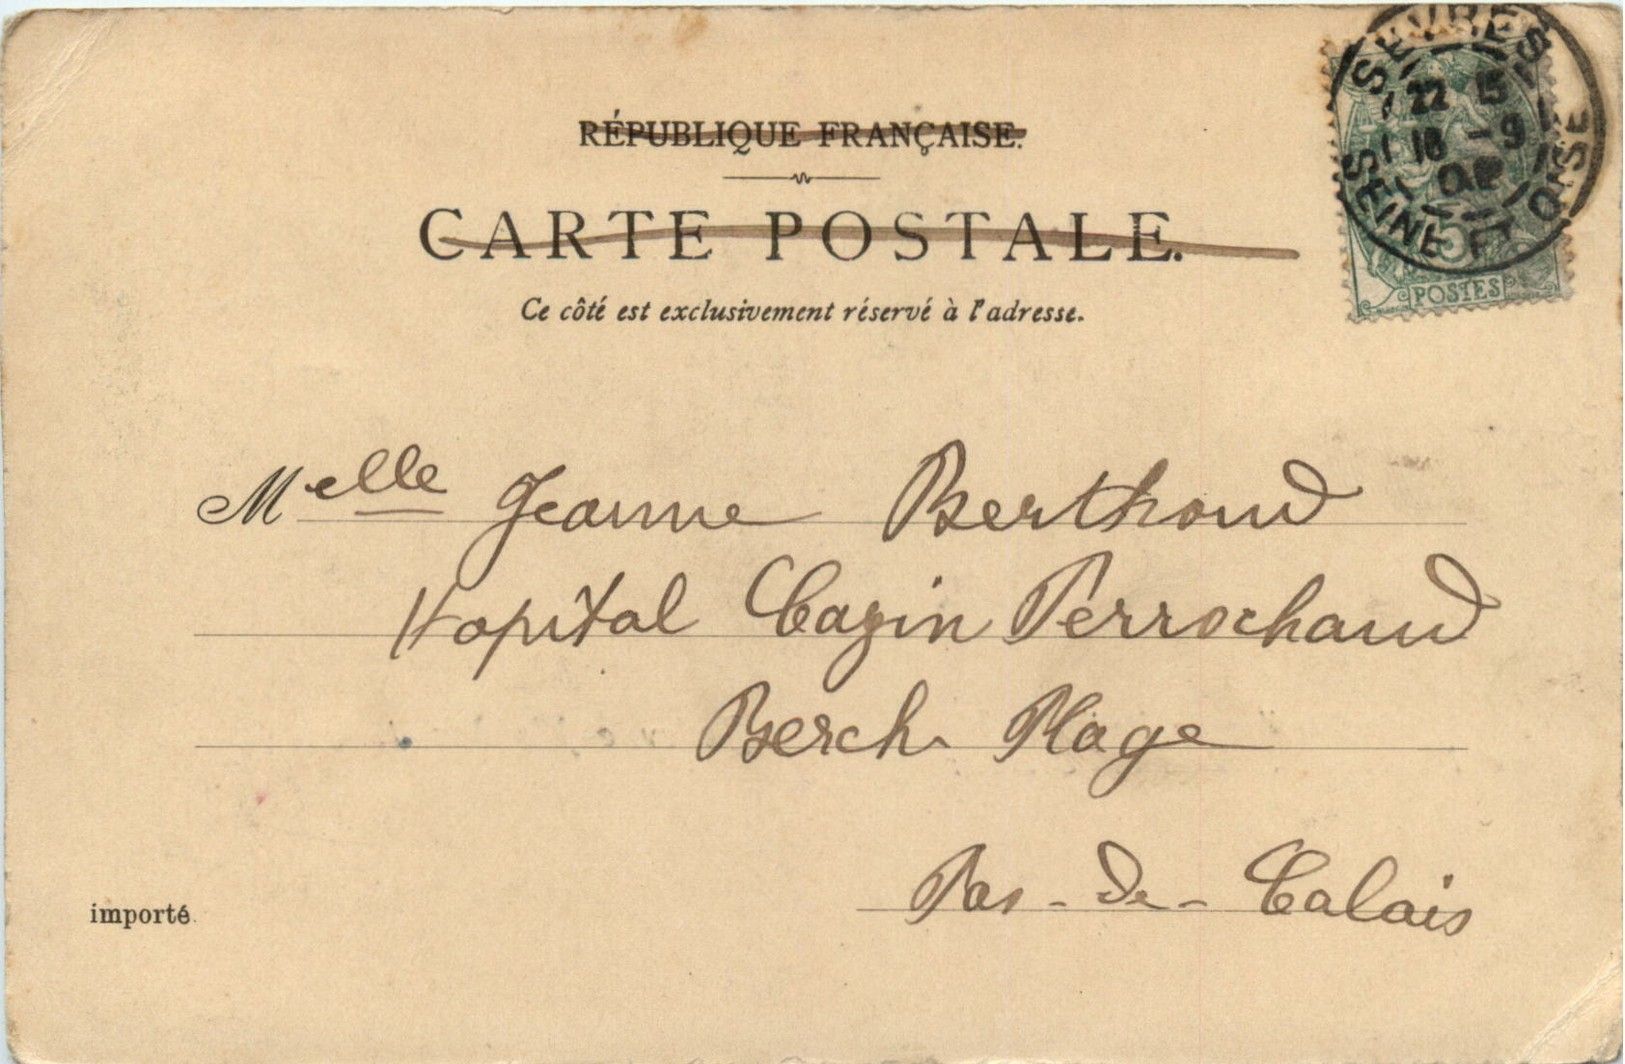 RÉPUBLIQUE FRANÇAISE.
CARTE POSTALE.
Ce côté est exclusivement réservé à l'adresse.
SEVRES
22 15
18 - 9
02
SEINE ET OISE
5
POSTES
Melle Jeanne Berthoud
Hopital Cazin Perrochaud
Berck Plage
Pas-de-Calais
importé